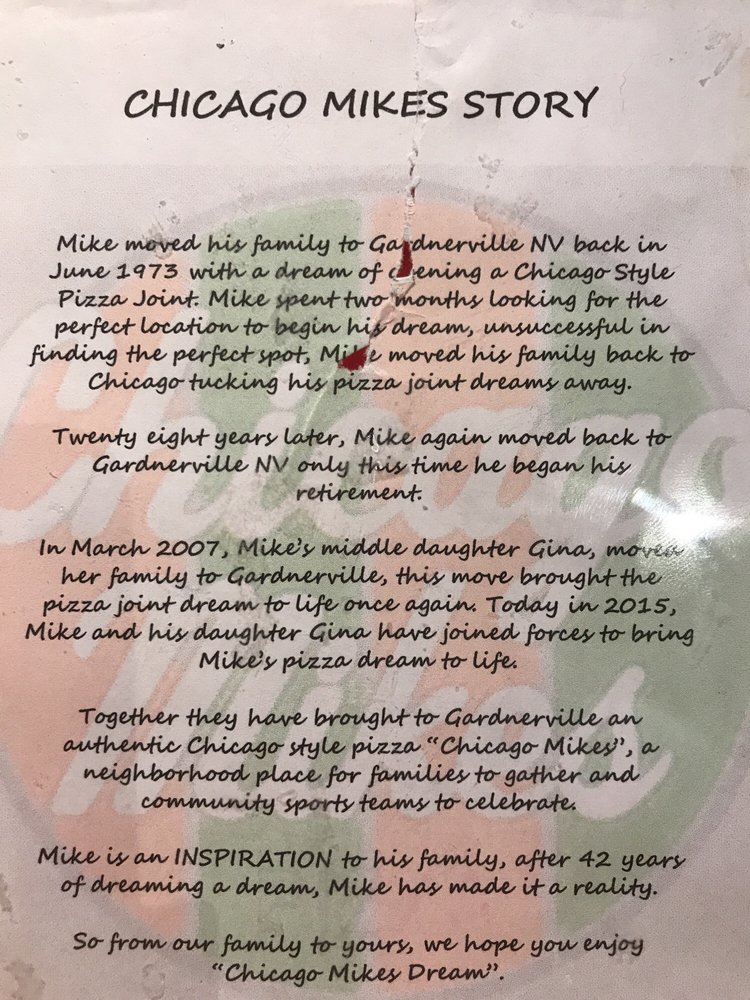 CHICAGO MIKES STORY
Mike moved his family to Gardnerville NV back in
June 1973 with a dream of opening a Chicago Style
Pizza Joint. Mike spent two months looking for the
perfect location to begin his dream, unsuccessful in
finding the perfect spot, Mike moved his family back to
Chicago tucking his pizza joint dreams away.
Twenty eight years later, Mike again moved back to
Gardnerville NV only this time he began his
retirement.
In March 2007, Mike's middle daughter Gina, moved
her family to Gardnerville, this move brought the
pizza joint dream to life once again. Today in 2015,
Mike and his daughter Gina have joined forces to bring
Mike's pizza dream to life.
Together they have brought to Gardnerville an
authentic Chicago style pizza "Chicago Mikes", a
neighborhood place for families to gather and
community sports teams to celebrate.
Mike is an INSPIRATION to his family, after 42 years
of dreaming a dream, Mike has made it a reality.
So from our family to yours, we hope you enjoy
"Chicago Mikes Dream".
Chicago
Mikes